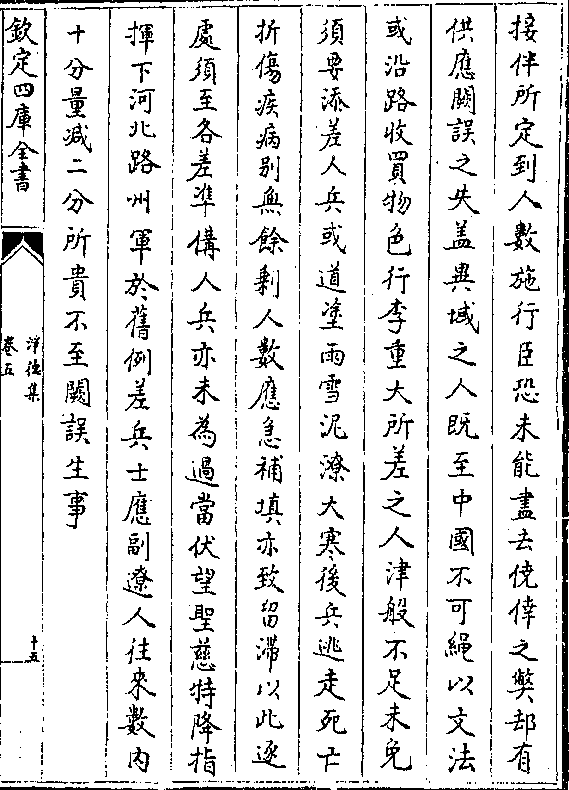 接伴所定到人數施行臣恐未能盡去僥倖之弊却有
供應闕誤之失盖異域之人既至中國不可繩以文法
或沿路收買物色行李重大所差之人津般不足未免
須要添差人兵或道塗雨雪泥潦大寒後兵逃走死亡
折傷疾病别無餘剩人數應急補填亦致留滯以此逐
處須至各差準備人兵亦未為過當伏望聖慈特降指
揮下河北路州軍於舊例差兵士應副遼人往來數内
十分量减二分所貴不至闕誤生事
欽定四庫全書
净德集
卷五
十五